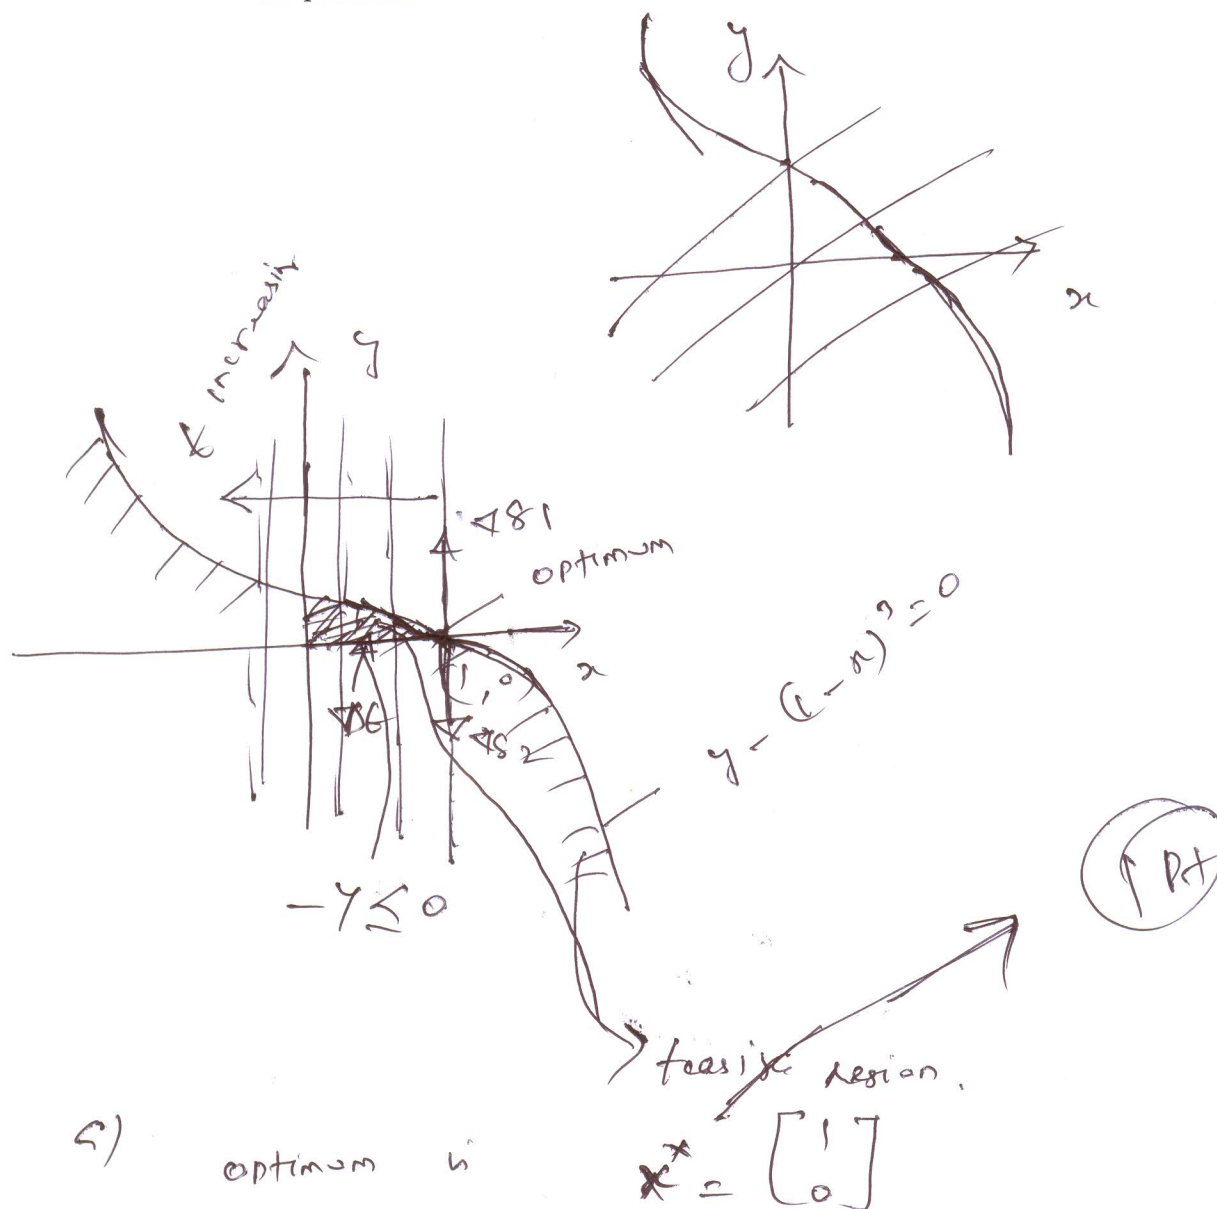 y
x
increasing
y
∇g1
optimum
x
(1, 0)
∇g2
y - (1 - x)³ = 0
-y ≤ 0
feasible region.
a)
optimum is
x* = [1
0]